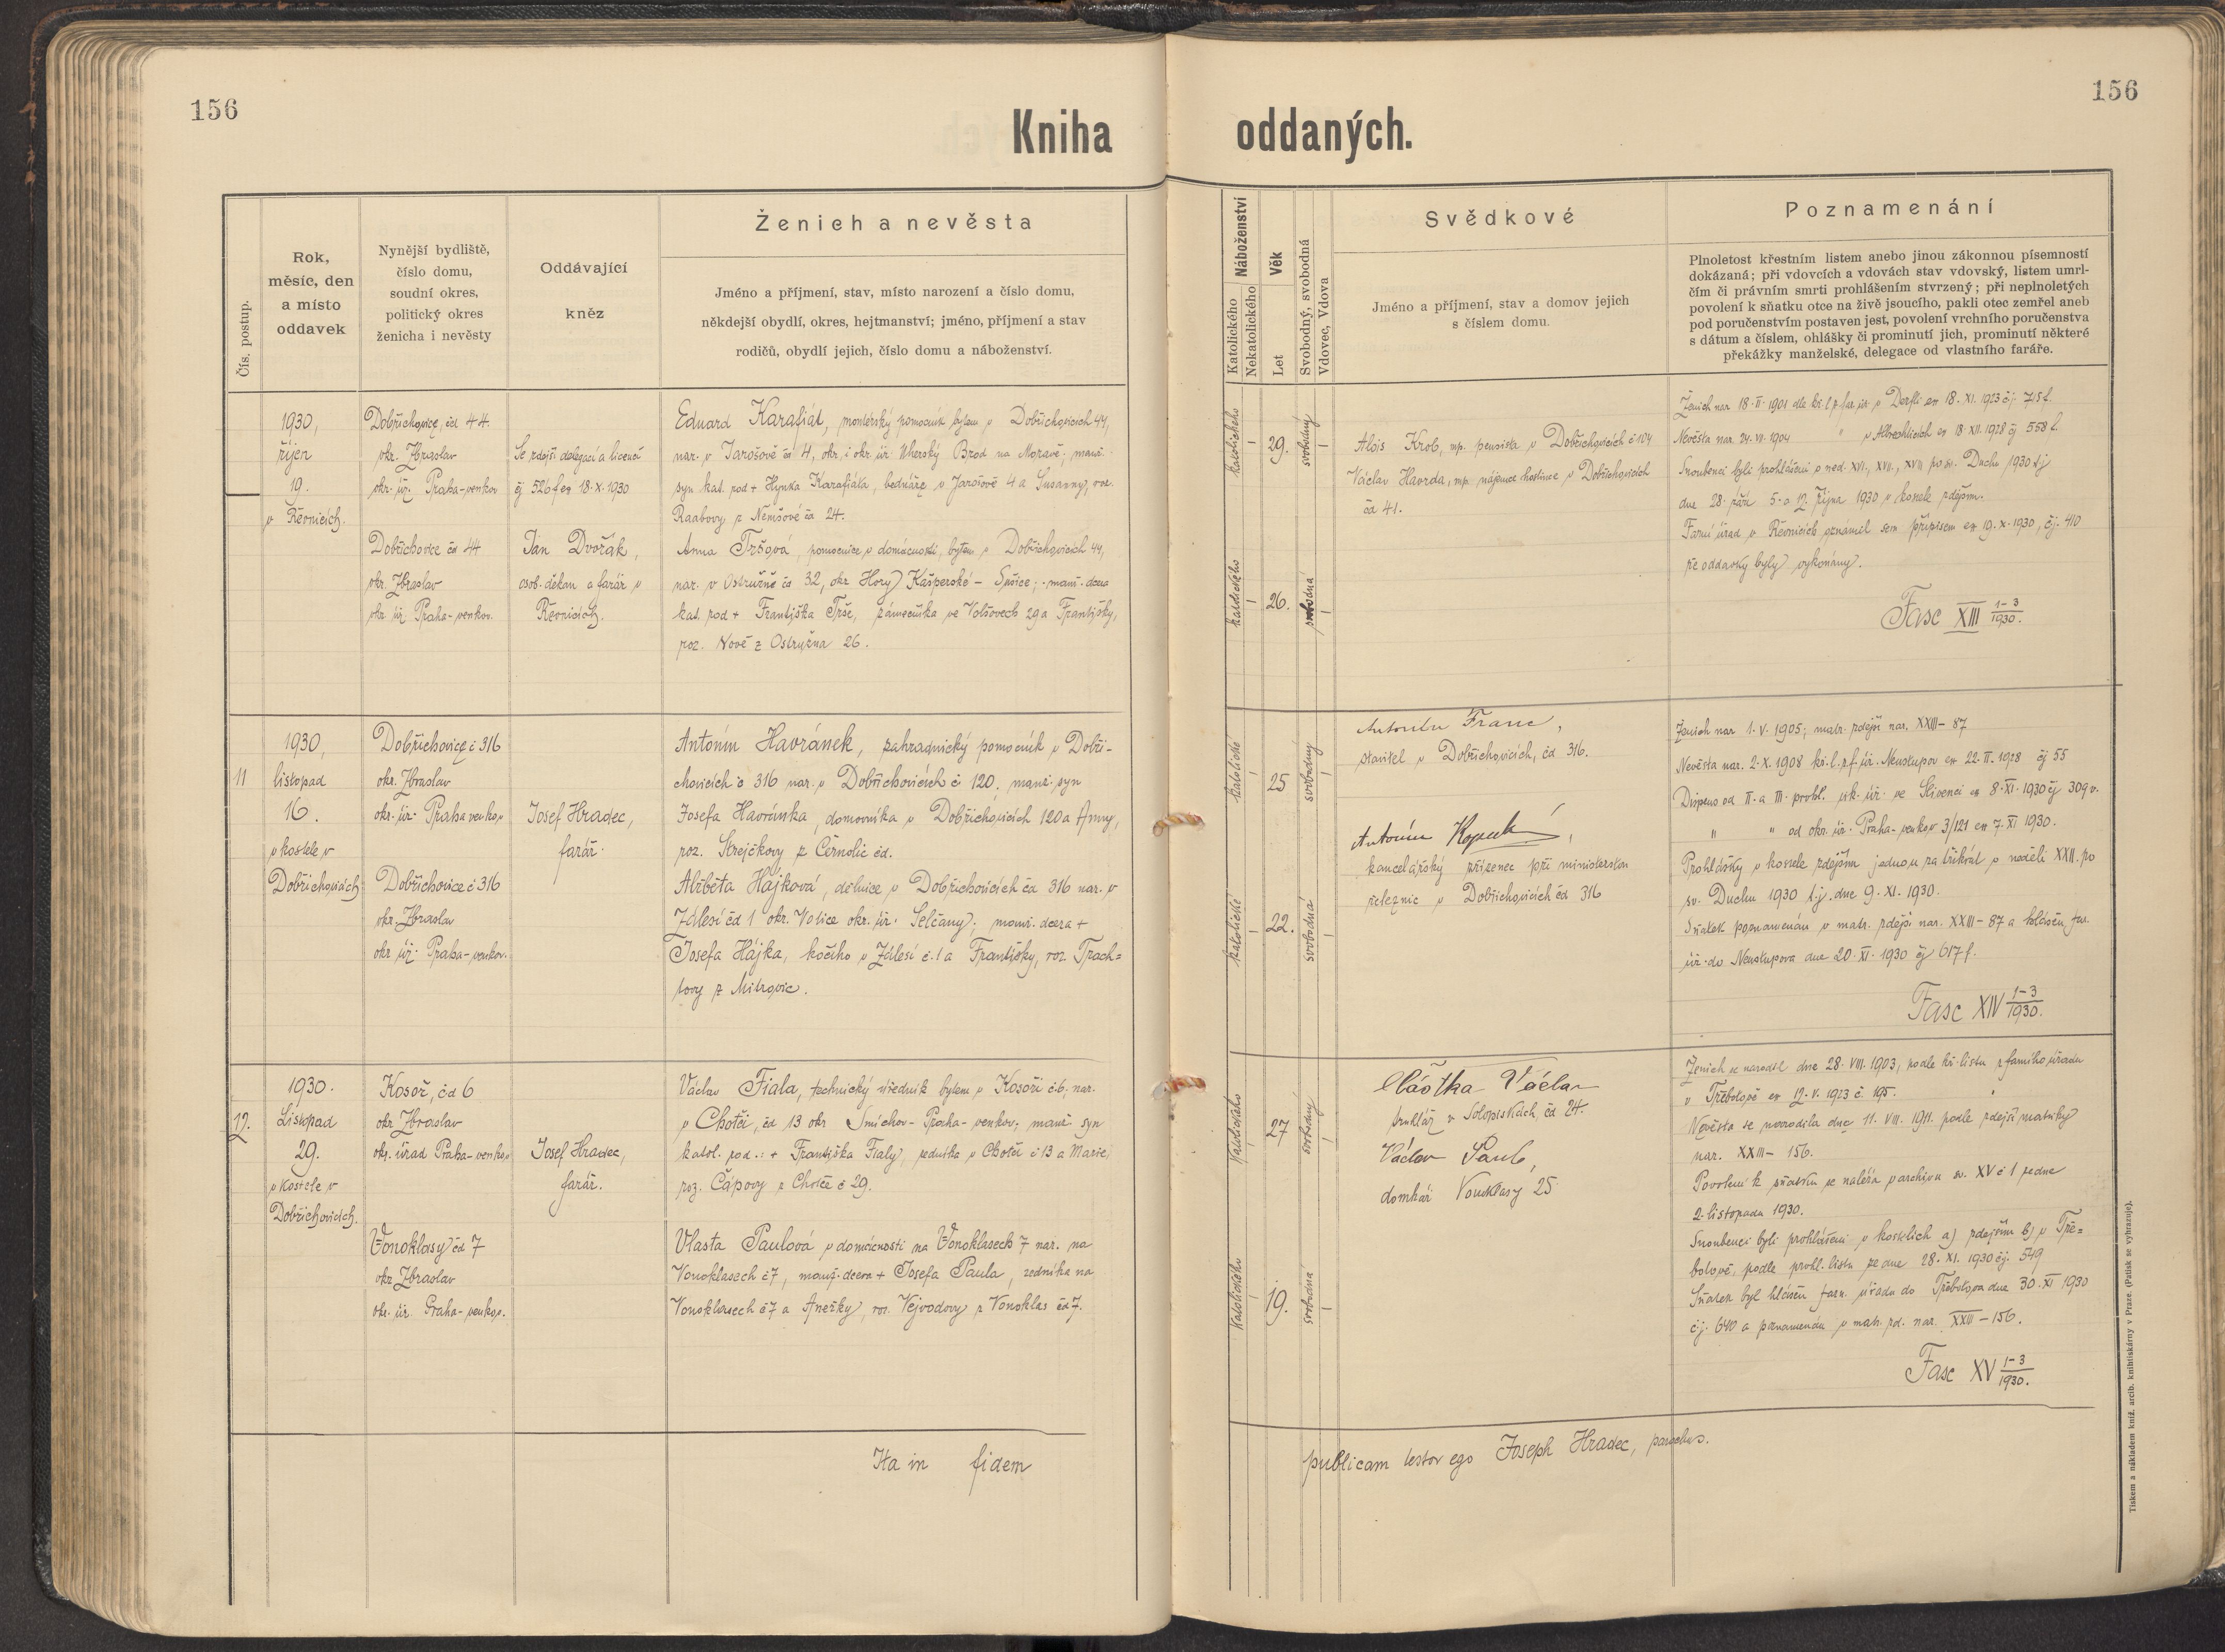 156
156
Kniha oddaných.
Čís. postup.
Rok,
měsíc, den
a místo
oddavek
Nynější bydliště,
číslo domu,
soudní okres,
politický okres
ženicha i nevěsty
Oddávající
kněz
Ženich a nevěsta
Jméno a příjmení, stav, místo narození a číslo domu,
někdejší obydlí, okres, hejtmanství; jméno, příjmení a stav
rodičů, obydlí jejich, číslo domu a náboženství.
Náboženství
Katolického
Nekatolického
Věk
Let
Svobodný, svobodná
Vdovec, Vdova
Svědkové
Jméno a příjmení, stav a domov jejich
s číslem domu.
Poznamenání
Plnoletost křestním listem anebo jinou zákonnou písemností
dokázaná; při vdovcích a vdovách stav vdovský, listem umrl-
čím či právním smrti prohlášením stvrzený; při neplnoletých
povolení k sňatku otce na živě jsoucího, pakli otec zemřel aneb
pod poručenstvím postaven jest, povolení vrchního poručenstva
s dátum a číslem, ohlášky či prominutí jich, prominutí některé
překážky manželské, delegace od vlastního faráře.
1930,
říjen
19.
v Řevnicích.
Dobřichovice, čd 44.
okr. Zbraslav
okr. úř. Praha-venkov
Dobřichovice čd 44
okr. Zbraslav
okr. úř. Praha-venkov.
Se zdejší delegací a licencí
čj 526 f ex 18.X.1930
Jan Dvořák,
osob. děkan a farář v
Řevnicích.
Eduard Karafiát, montérský pomocník bytem v Dobřichovicích 44,
nar. v Jarošově čd 4, okr. i okr. úř. Uherský Brod na Moravě; manž.
syn kat. rod + Hynka Karafiáta, bednáře v Jarošově 4 a Susanny, roz.
Raabovy z Němšové čd 24.
Anna Tršová, pomocnice v domácnosti, bytem v Dobřichovicích 44,
nar. v Ostružně čd 32, okr. Hory Kašperské - Sušice; manž. dcera
kat. rod + Františka Trše, zámečníka ve Volšovech 29 a Františky,
roz. Nové z Ostružna 26.
katolického
29.
svobodný
katolického
26.
svobodná
Alois Krob, mp. pensista v Dobřichovicích č 104
Václav Havrda, mp. nájemce hostince v Dobřichovicích
čd 41.
Ženich nar. 18.II.1901 dle kř. l. far. úř. v Derfli ex 18.XI.1923 čj. 715 f.
Nevěsta nar. 24.VI.1904 " v Albrechticích ex 18.XII.1928 čj 558 f.
Snoubenci byli prohlášeni v ned. XVI., XVII., XVIII po sv. Duchu 1930 t.j
dne 28. září 5. a 12. října 1930 v kostele zdejším.
Farní úřad v Řevnicích oznámil sem přípisem ex 19.X.1930, čj. 410
že oddavky byly vykonány.
Fasc XIII 1-3/1930.
11
1930,
listopad
16.
v kostele v
Dobřichovicích
Dobřichovice č 316
okr. Zbraslav
okr. úř. Praha venkov
Dobřichovice č 316
okr. Zbraslav
okr úř. Praha-venkov.
Josef Hradec,
farář.
Antonín Havránek, zahradnický pomocník v Dobři-
chovicích č 316 nar. v Dobřichovicích č 120, manž. syn
Josefa Havránka, domovníka v Dobřichovicích 120 a Anny,
roz. Strejčkovy z Černolic čd.
Alžběta Hájková, dělnice v Dobřichovicích čd 316 nar. v
Zálesí čd 1 okr. Votice okr. úř. Selčany; manž. dcera +
Josefa Hájka, kočího v Zálesí č. 1 a Františky, roz. Trach=
tovy z Mitrovic.
katolické
25
svobodný
katolické
22.
svobodná
Antonín Franc,
stavitel v Dobřichovicích, čd 316.
Antonín
kancelářský zřízenec při ministerstvu
železnic v Dobřichovicích čd 316
Ženich nar 1.V.1905; matr. zdejší nar. XXIII-87
Nevěsta nar. 2.X.1908 kř. l. z f. úř. Neustupov ex 22.II.1928 čj 55
Dispens od II. a III. prohl. vik. úř. ve Slivenci ex 8.XI.1930 čj 309 v.
" " od okr. úř. Praha-venkov 3/121 ex 7.XI 1930.
Prohlášky v kostele zdejším jednou za třikrát v neděli XXII. po
sv. Duchu 1930 t.j. dne 9.XI.1930.
Sňatek poznamenán v matr. zdejší nar. XXIII-87 a hlášen far.
úř. do Neustupova dne 20.XI.1930 čj 617 f.
Fasc XIV 1-3/1930.
12.
1930.
Listopad
29.
v kostele v
Dobřichovicích.
Kosoř, čd 6
okr Zbraslav
okr. úřad Praha-venkov
Vonoklasy čd 7
okr Zbraslav
okr. úř. Praha-venkov.
Josef Hradec,
farář.
Václav Fiala, technický úředník bytem v Kosoři č 6; nar.
v Chotči, čd 13 okr Smíchov-Praha-venkov; manž syn
katol. rod.: + Františka Fialy, zedníka v Chotči č 13 a Marie,
roz. Čápovy z Chotče č 29.
Vlasta Paulová v domácnosti na Vonoklasech 7 nar. na
Vonoklasech č 7, manž. dcera + Josefa Paula, zedníka na
Vonoklasech č 7 a Anežky, roz. Vejvodovy z Vonoklas čd 7.
Katolického
27
svobodný
Katolického
19.
svobodná
Částka Václav
truhlář v Solopiskách, čd 24.
Václav Paul,
domkář Vonoklasy 25
Ženich se narodil dne 28.VIII.1903, podle kř. listu z farního úřadu
v Třebotově ex 12.V.1923 č. 195.
Nevěsta se narodila dne 11.VIII.1911. podle zdejší matriky
nar. XXIII-156.
Povolení k sňatku se nalézá v archivu sv. XV č 1 ze dne
2. listopadu 1930.
Snoubenci byli prohlášeni v kostelích a) zdejším b) v Tře=
botově, podle prohl. listu ze dne 28.XI.1930 čj. 549
Sňatek byl hlášen farn. úřadu do Třebotova dne 30.XI 1930
č.j. 640 a poznamenán v matr. zd. nar. XXIII-156.
Fasc XV 1-3/1930.
Ita in fidem publicam testor ego Joseph Hradec, parochus.
Tiskem a nákladem kníž. arcib. knihtiskárny v Praze. (Patisk se vyhrazuje).